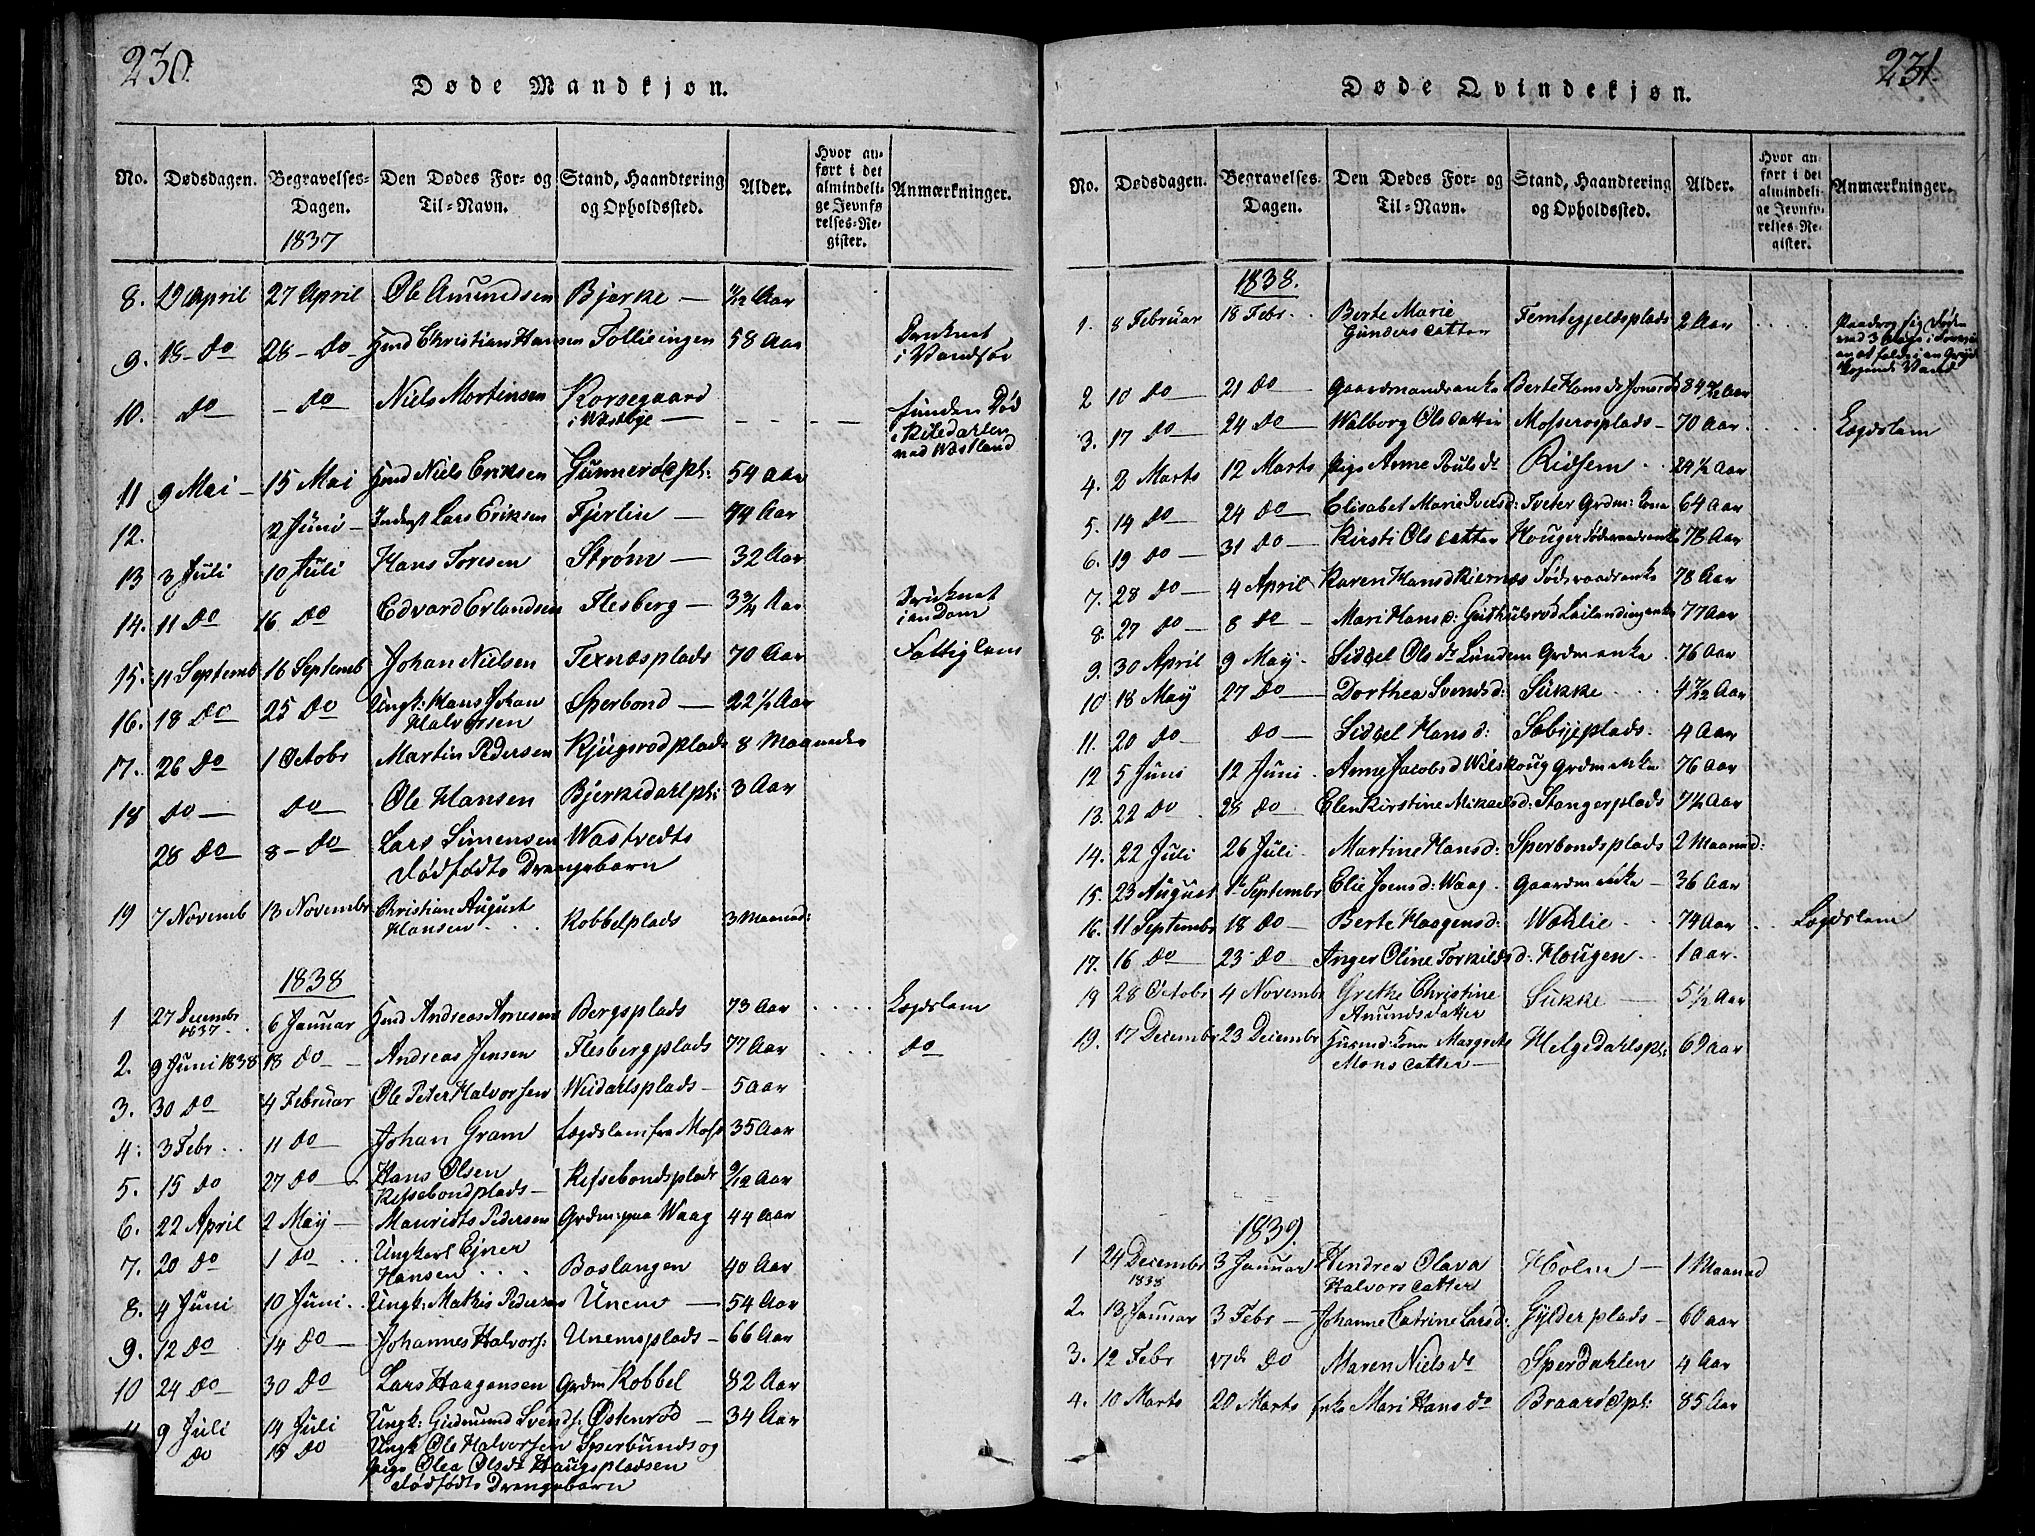 230.
Døde Mandkjøn.
No. Dødsdagen. Begravelses-Dagen. Den Dødes For- og Til-Navn. Stand, Haandtering og Opholdssted. Alder. Hvor anført i det almindelige Jevnførelses-Register. Anmærkninger.
1837
8. 22 April 27 April Ole Amundsen Bjerke — 11/12 Aar
9. 18 – do 28 – do Hmd Christian Hansen Follieingen 58 Aar Druknet
i Vandsøe
10. do – do Niels Mortensen Korsegaard
i Westbye — — — — funden Død
i Kiledalen
ved Westland
11 9 Mai – 15 Mai Hmd Niels Eriksen Gunnerødpl: 54 Aar
12. 2 Juni – Inderst Lars Eriksen Fjerlin — 74 Aar
13 3 Juli 10 Juli Hans Toresen Strøm — 32 Aar
14. 11 do 16 do Edvard Erlandsen Flesberg — 3 3/4 Aar Druknet
i en Dam
15. 11 Septemb 16 Septemb Johan Nielsen Texnæsplads 70 Aar Fattiglem
16. 18 do 25 do Ungk: Hans Johan
Halvorsen Sperbond — 22 1/2 Aar
17. 26 do 1 Octobr Martin Pedersen Kjugsrødplads 8 Maaneder
18 do — do — Ole Hansen Bjerkedahlpl: 3 Aar
28 do 8 – do Lars Simensen Wastvedts
dødfødte Drengebarn
19 7 Novemb 13 Novembr Christian August
Hansen Kobbelplads 3 Maaned:
1838
1 27 Decembr
1837 6 Januar Hmd Andreas Arnesen Bergsplads 73 Aar Lægdslem
2. 9 Juni 1838 13 do Andreas Jensen Flesbergplads 77 Aar do
3. 30 do 4 Februar Ole Peter Halvorsen Weidahlsplads – 5 Aar
4. 3 Febr 11 do Johan Gram Lægdslem fra Moss 35 Aar
5. 15 do 27 do Hans Olsen
Refsebondplads – Refsebondsplads 9/12 Aar
6. 22 April 2 May — Mauridts Pedersen Grdm: paa Waag 44 Aar
7. 20 do 1 do Ungkarl Ejner
Hansen Boslangen 40 Aar
8. 4 Juni 10 Juni Ungk: Mathis Pedersen Unem — 54 Aar
9. 12 do 14 do — Johannes Halvors: Unemsplads – 66 Aar
10 24 do 30 do Lars Haagensen Grdm Kobbel 82 Aar
11 9 Juli 14 Juli Ungk: Gudmund Svends: Østenrød — 34 Aar
do 15 do Ungk Ole Halvorsen Sperbunds og
pige Olea Olsdr Haugspladsen
dødfødte Drengebarn
231.
Døde Qvindekjøn.
No. Dødsdagen. Begravelses-Dagen. Den Dødes For- og Til-Navn. Stand, Haandtering og Opholdssted. Alder. Hvor anført i det almindelige Jevnførelses-Register. Anmærkninger.
1838.
1. 8 Februar 18 Febr. Berte Marie
Gundersdatter Femtegjeldsplads 2 Aar
2 10 do 21 do Gaardmandsenke Berte Hans dr Jonsrød
3. 17 do 24 do Walborg Olsdatter Mosserosplads – 70 Aar Lægdslem
4. 2 Marts 12 Marts pige Anne Poulsdr Ridsem 24 1/2 Aar
5. 14 do 24 do Elisabet Marie Iversd: Tveter Grdm: Kone 64 Aar
6. 19 do 31 do Kirsti Olsdatter Houger Føderaadsenke 78 Aar
7. 28 do 4 April Karen Hansd Kiernæs Føderaadsenke 78 Aar
8. 27 do 8 do Mari Hansd: 77 Aar
9. 30 April 9 May. Sidsel Olsdr Lundem Grdmenke 76 Aar
10 18 May 27 do Dorthea Svendsd: Sukke 4 Aar
11. 20 do do Sidsel Hansd: Sæbyeplads 4 Aar
12 5 Juni 12 Juni Anne Jacobsd Wilskoug Grdmenke 76 Aar
13. 22 do 28 do Elen Kirstine Mikaelsd: Stangerplads 7 1/2 Aar
14. 22 Juli 26 Juli Martine Hansd: Sperbondsplads 2 Maaned:
15. 23 August 1 Septembr Elie Joensd: Waag Gaardmenke – 36 Aar
16. 11 Septembr 18 do Berte Haagensd: Wahlie 74 Aar Lægdslem
17. 16 do 23 do Anger Oline Torkildsd: Hougen 1 Aar.
18 28 Octobr 4 Novembr Grethe Christine
Amundsdatter Sukke — 5 1/2 Aar
19. 17 Decembr 23 Decembr Husmd: Kone Margrete
Monsdatter — Helgedahlspl: 69 Aar
1839.
1 24 Decembr
1838 3 Januar Hendrea Olava
Halvorsdatter Holm — 1 Maaned
2. 13 Januar 3 Febr – Johanne Catrine Larsd: Gylderplads – 60 Aar
3. 12 Febr 17de do Maren Nielsdr Sperdahlen 4 Aar
4. 10 Marts 20 Marts enke Mari Hansdr Braarødpl: 85 Aar